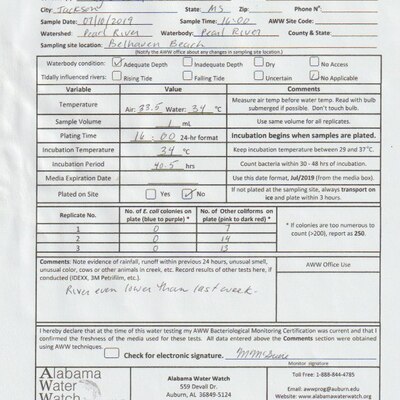 City: Jackson State: MS Zip: Phone N°:
Sample Date: 07/10/2019 Sample Time: 16:00 AWW Site Code:
Watershed: Pearl River Waterbody: Pearl River County & State:
Sampling site location: Belhaven Beach
(Notify the AWW office about any changes in sampling site location.)
Waterbody condition: Adequate Depth Inadequate Depth Dry No Access
Tidally influenced rivers: Rising Tide Falling Tide Uncertain No Applicable
Variable Values Comments
Temperature Air: 33.5 Water: 34 °C Measure air temp before water temp. Read with bulb submerged if possible. Don't touch bulb.
Sample Volume 1 mL Use same volume for all replicates.
Plating Time 16:00 24-hr format Incubation begins when samples are plated.
Incubation Temperature 34 °C Keep incubation temperature between 29 and 37 °C.
Incubation Period 40.5 hrs Count bacteria within 30 - 48 hrs of incubation.
Media Expiration Date Use this date format, Jul/2019 (from the media box).
Plated on Site Yes No If not plated at the sampling site, always transport on ice and plate within 3 hours.
Replicate No. No. of E. coli colonies on plate (blue to purple) * No. of Other coliforms on plate (pink to dark red) * * If colonies are too numerous to count (>200), report as 250.
1 0 7
2 0 14
3 0 13
Comments: Note evidence of rainfall, runoff within previous 24 hours, unusual smell, unusual color, cows or other animals in creek, etc. Record results of other tests here, if conducted (IDEXX, 3M Petrifilm, etc.). AWW Office Use
River even lower than last week.
I hereby declare that at the time of this water testing my AWW Bacteriological Monitoring Certification was current and that I confirmed the freshness of the media used for these tests. All data entered above the Comments section were obtained using AWW techniques.
Check for electronic signature.
Monitor signature
Alabama
Water
Watch
Alabama Water Watch
559 Devall Dr.
Auburn, AL 36849-5124
Toll Free: 1-888-844-4785
Email: awwprog@auburn.edu
Website: www.alabamawaterwatch.org